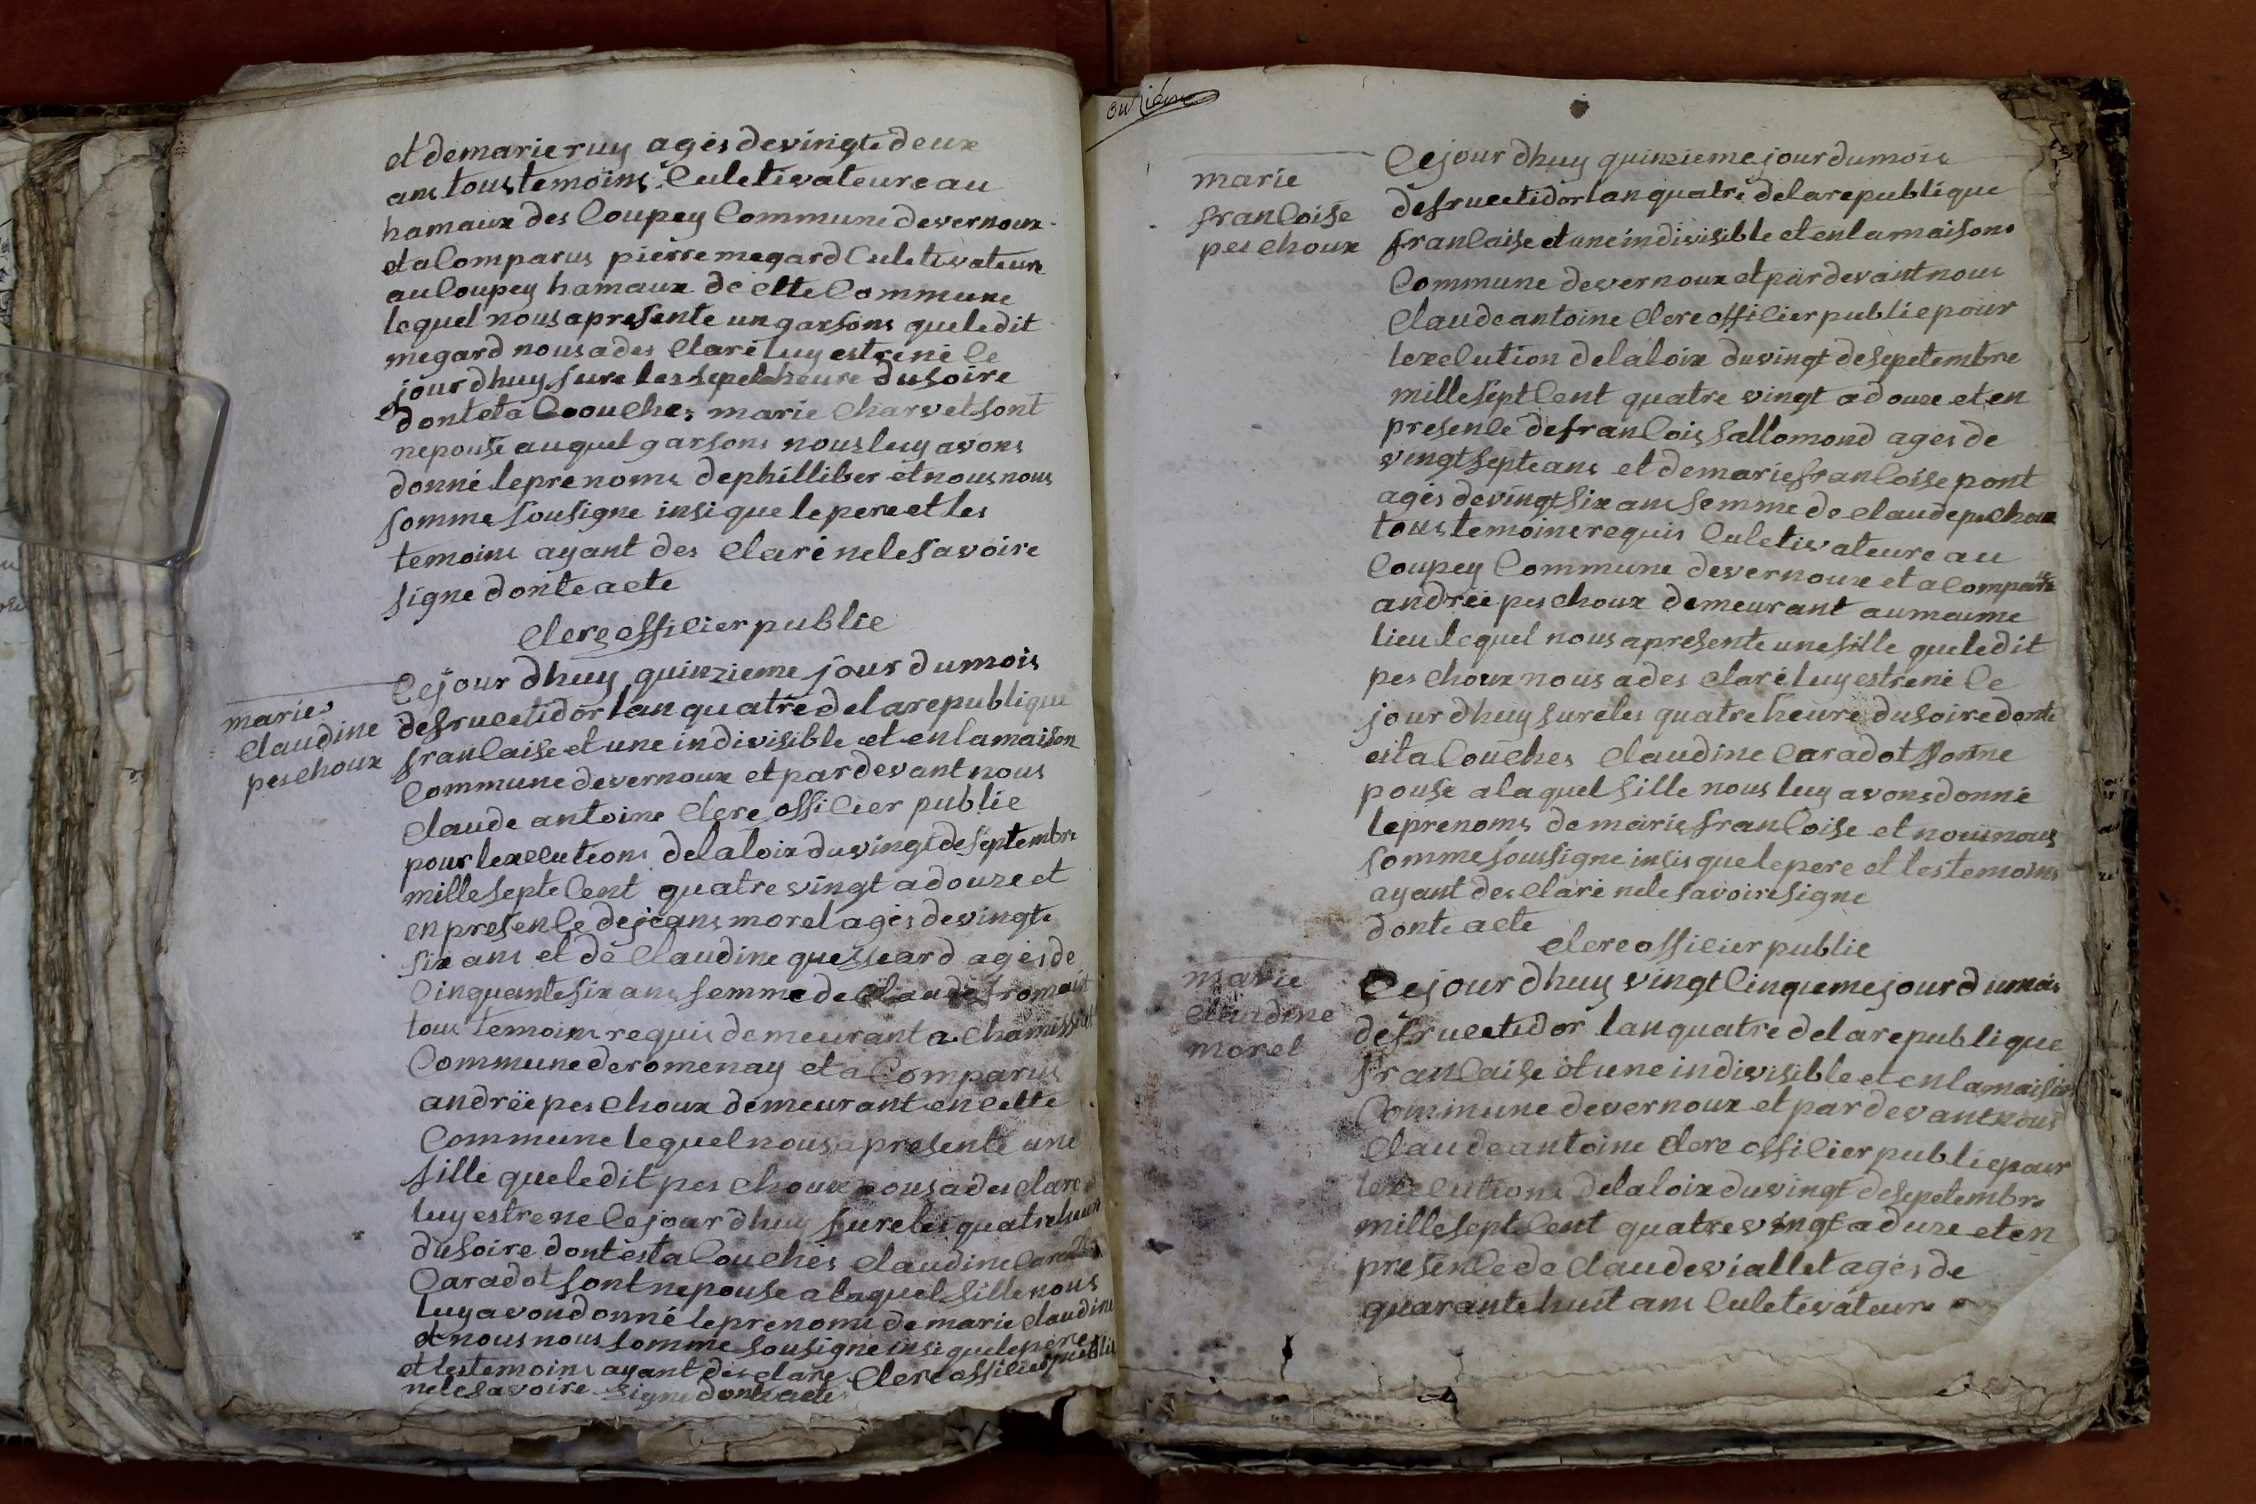 et demarie ruy agés devingte deux
ans tous temoins Culetivateure au
hamaux des Coupey Commune devernoux
et a Comparus pierre megard Culetivateure
au Coupey hamaux de Cette Commune
lequel nous apresente un garsons queledit
megard nous a des Claré luy estrené Ce
jour dhuy sure les sepet heure du soire
dont et a Coouches marie Charvet sont
nepouse auquel garsons nous luy avons
donné leprenoms dephilliber et nous nous
somme sousigne insi que le pere et les
temoins ayant des Claré nele savoire
signe donte acte
Clerc officier publie
marie
Claudine
pes Choux
Cejour dhuy quinzieme jour dumois
defructidor lan quatre delarepublique
francaise et une indivisible et enlamaison
Commune devernoux et pardevant nous
Claude antoine Clerc officier publie
pour lexecutions delaloix duvingt de septembre
mille septe Cent quatre vingt a douze et
en presence dejeans morel agés devingte
six ans et de Claudine agés de
Cinquante six ans femme de Claude
tous temoins requis demeurant a
Commune deromenay et a Comparus
andreë pes Choux demeurant en Cette
Commune lequel nous apresente une
fille queledit pes Choux nous a des Claré
luy estrene Cejour dhuy sureles quatre heure
dusoire dont esta Couchés Claudine
Caradot sont nepouse alaquel fille nous
luy avons donné leprenoms de marie Claudine
et nous nous somme sousigne insi quelepere
et lestemoins ayant des Claré Clerc officier publie
nele savoire signe donte acte
onzième
marie
francoise
pes Choux
Cejour dhuy quinzieme jour dumois
defructidor lan quatre delarepublique
francaise et une indivisible et enlamaisons
Commune devernoux et pardevant nous
Claude antoine Clerc officier publie pour
lexecution delaloix duvingt desepetembre
mille sept Cent quatre vingt a douze et en
presence defrancois sallomond agés de
vingt septe ans et demarie francoise pont
agés devingt six ans femme de Claude pes Choux
tous temoins requis Culetivateure au
Coupey Commune devernoux et a Comparus
andreë pes Choux demeurant aumeume
lieu lequel nous apresente une fille queledit
pes Choux nous a des Claré luy estrené Ce
jour dhuy sureles quatre heure dusoire donte
esta Couches Claudine Caradot sont ne
pouse alaquel fille nous luy avons donné
leprenoms de marie francoise et nous nous
somme soussigne insis quelepere et lestemoins
ayant des Claré nele savoire signe
donte acte
Clerc officier publie
marie
Claudine
morel
Cejour dhuy vingt Cinquieme jour dumois
defructidor lan quatre delarepublique
francaise et une indivisible et enlamaison
Commune devernoux et pardevant nous
Claude antoine Clerc officier publie pour
lexecutions delaloix duvingt desepetembre
mille sept Cent quatre vingt a duze et en
presence de Claude viallet agés de
quarante huit ans Culetivateure